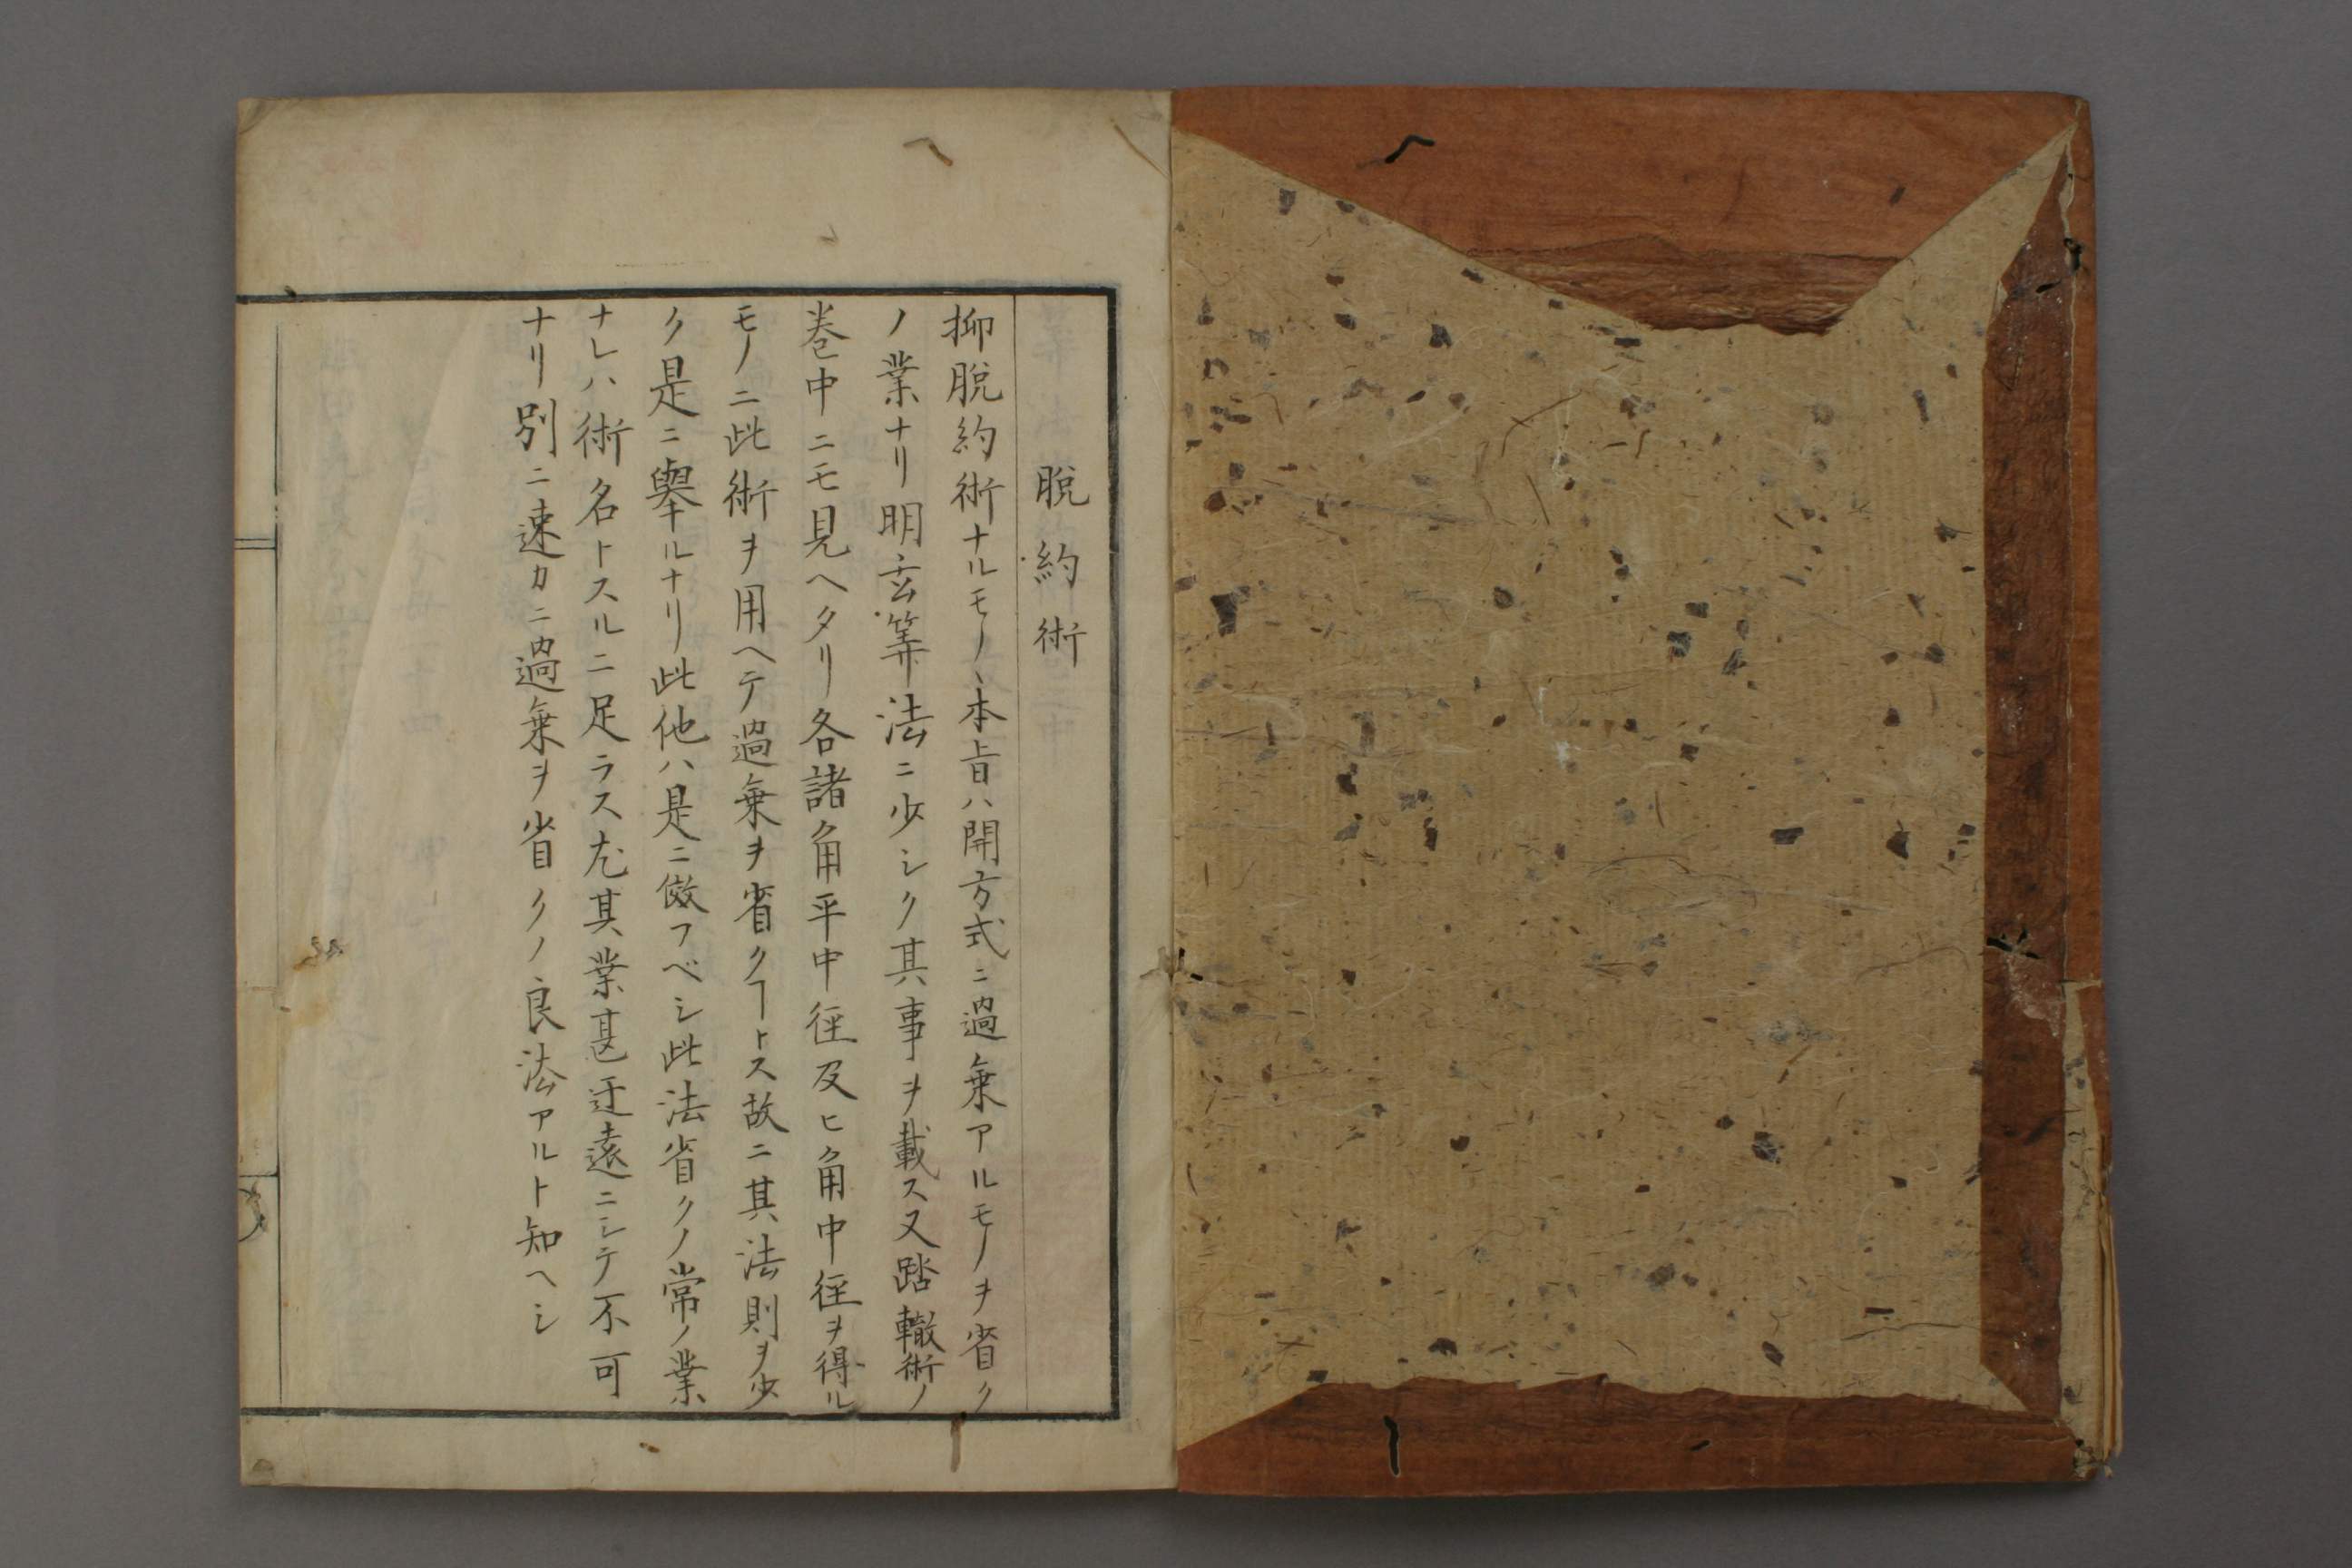 脱約術
抑脱約術ナルモノヽ本旨ハ開方式ニ過乗アルモノヲ省ク
ノ業ナリ明玄筭法ニ少シク其事ヲ載ス又踏轍術ノ
巻中ニモ見ヘタリ各諸角平中径及ヒ角中径ヲ得ル
モノニ此術ヲ用ヘテ過乗ヲ省クヿトス故ニ其法則ヲ少
ク是ニ舉ルナリ此他ハ是ニ倣フベシ此法省クノ常ノ業
ナレハ術名トスルニ足ラス尤其業甚迂遠ニシテ不可
ナリ別ニ速カニ過乗ヲ省クノ良法アルト知ヘシ